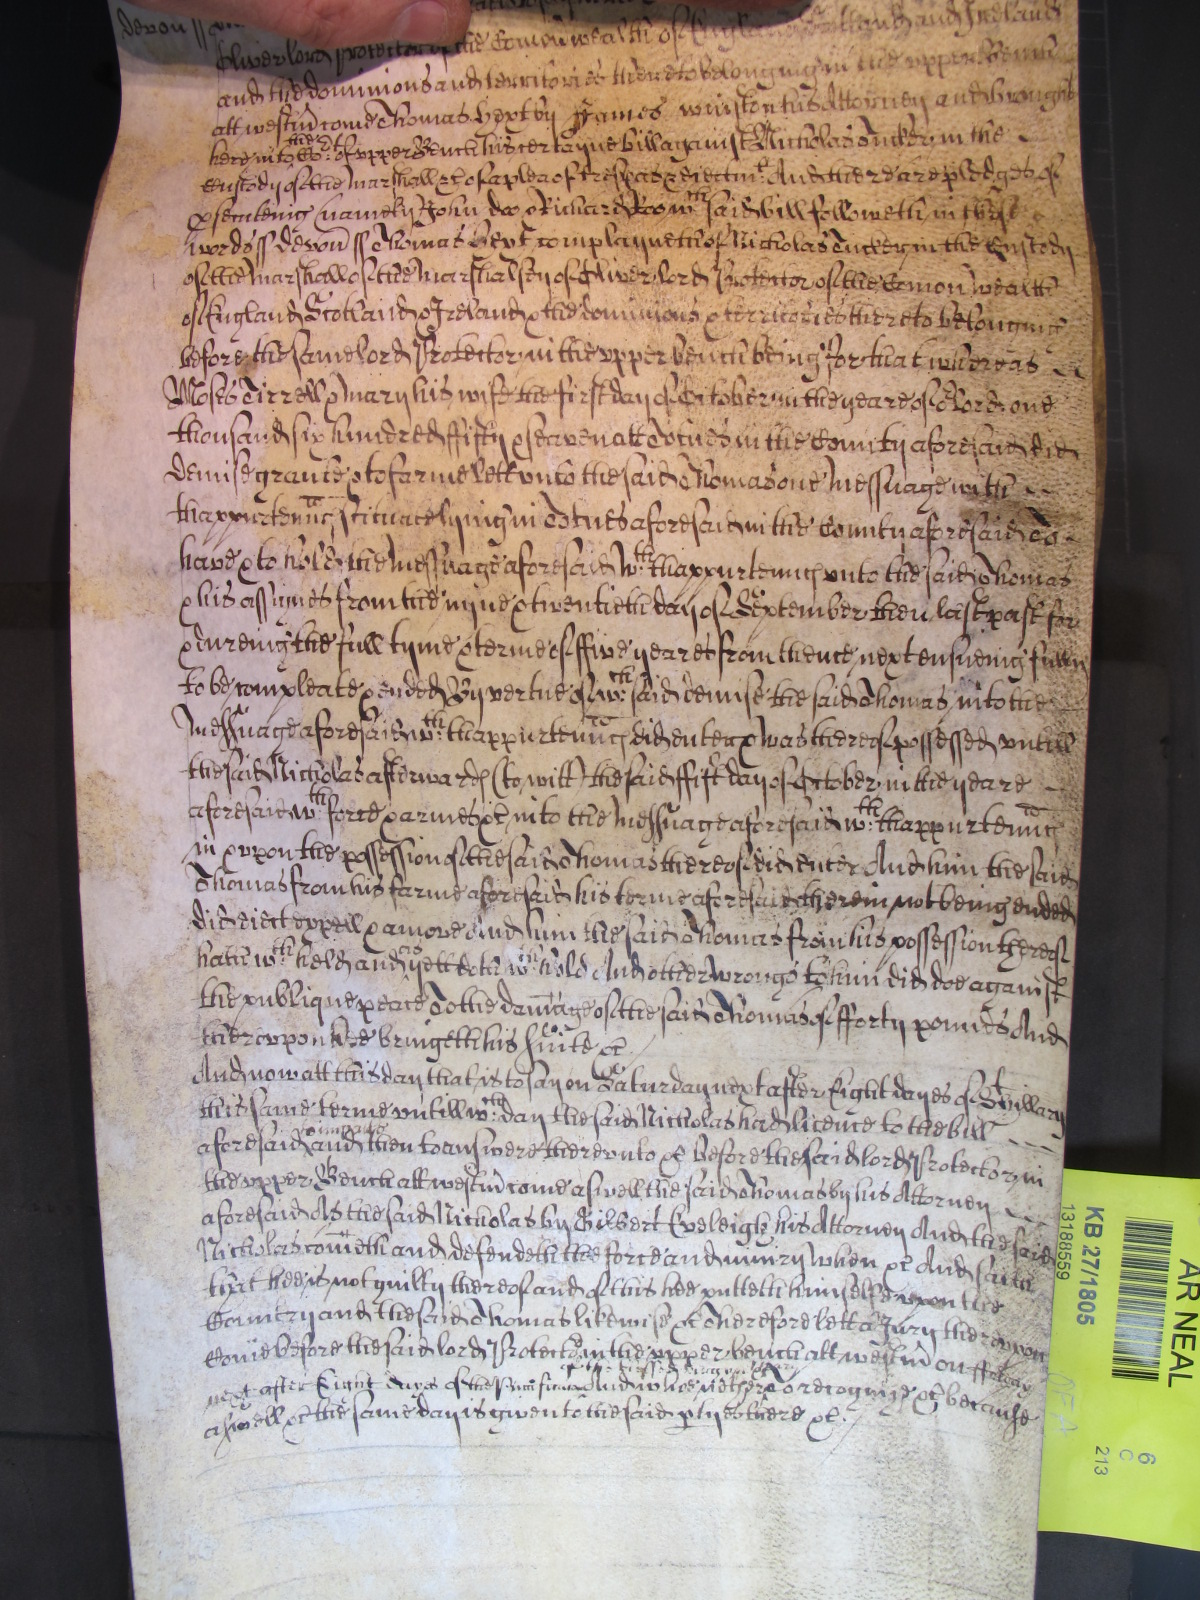 devon ss
Oliver lord protector of the Comon wealth of England Scotland and Ireland
and the dominions and territories thereto belonging in the upper Bench
att westm̄ come Thomas Bext by James winston his Attorney and brought
here into the Co:rt of upper Bench his certayne bill against Nicholas Tucker in the
Custody of the Marshall &c of a plea of trespas & eiectm:t And there are pledges of
psecuteing (namely John doo & Richard Roo w:th said bill followeth in these
words ss devon̄ ss Thomas Bext complayneth of Nicholas Tucker in the Custody
of the Marshall of the Marshalsey of Oliver lord Protector of the Comon wealth
of England Scotland & Ireland & the dominions & territories thereto belonging
before the same lord Protector in the upper bench being for that whereas
Moses Tirrell & Mary his wife the first day of October in the yeare of o:r lord one
thousand six hundred fifty & seaven att Totnes in the County aforesaid did
demise graunte & to farme lett unto the said Thomas one Messuage with
thappurten̄nc scituate lying in Totnes aforesaid in the County aforesaid To
have & to hold the Messuage aforesaid w:th thappurtennc unto the said Thomas
& his assignes from the nyne & twentieth day of September then last past for
& dureing the full tyme & terme of ffive yeares from thence next ensueing fully
to be compleate & ended By vertue of w:ch said demise the said Thomas into the
Messuage aforesaid w:th thappurtennc did enter & was thereof possessed untill
the said Nicholas afterward (to witt) the said ffirst day of October in the yeare
aforesaid w:th force & armes &c into the Messuage aforesaid w:th thappurtennc
in & upon the possession of the said Thomas thereof did enter And him the said
Thomas from his farme aforesaid his terme aforesaid therein not being ended
did eiect expell & amove And him the said Thomas from his possession thereof
hath w:th held and yett doth w:th hold And other wrongs to him did doe against
the publique peace To the damage of the said Thomas of fforty pounds And
thereupon hee bringeth his suite &c
And now att this day that is to say on Saturday next after Eight dayes of St hillary
this same terme untill w:ch day the said Nicholas had licence to the bill
aforesaid and then to answere thereunto &c before the said lord Protector in
the upper Bench att westm̄ come aswell the said Thomas by his Attorney
aforesaid As the said Nicholas by Gilbert Eveleigh his Attorney And the said
Nicholas cometh and defendeth the force and iniury when &c And saith
that hee is not guilty thereof and of this hee putteth himselfe upon the
Country and the said Thomas likewise &c Therefore lett a Jury thereupon
Come before the said lord Protector in the upper bench att westm̄ on
next after Eight dayes of the And who neither To recognize &c because
aswell &c the same day is given to the said ptyes there &c
AR NEAL
KB 27/1805
13188559
6
C
213